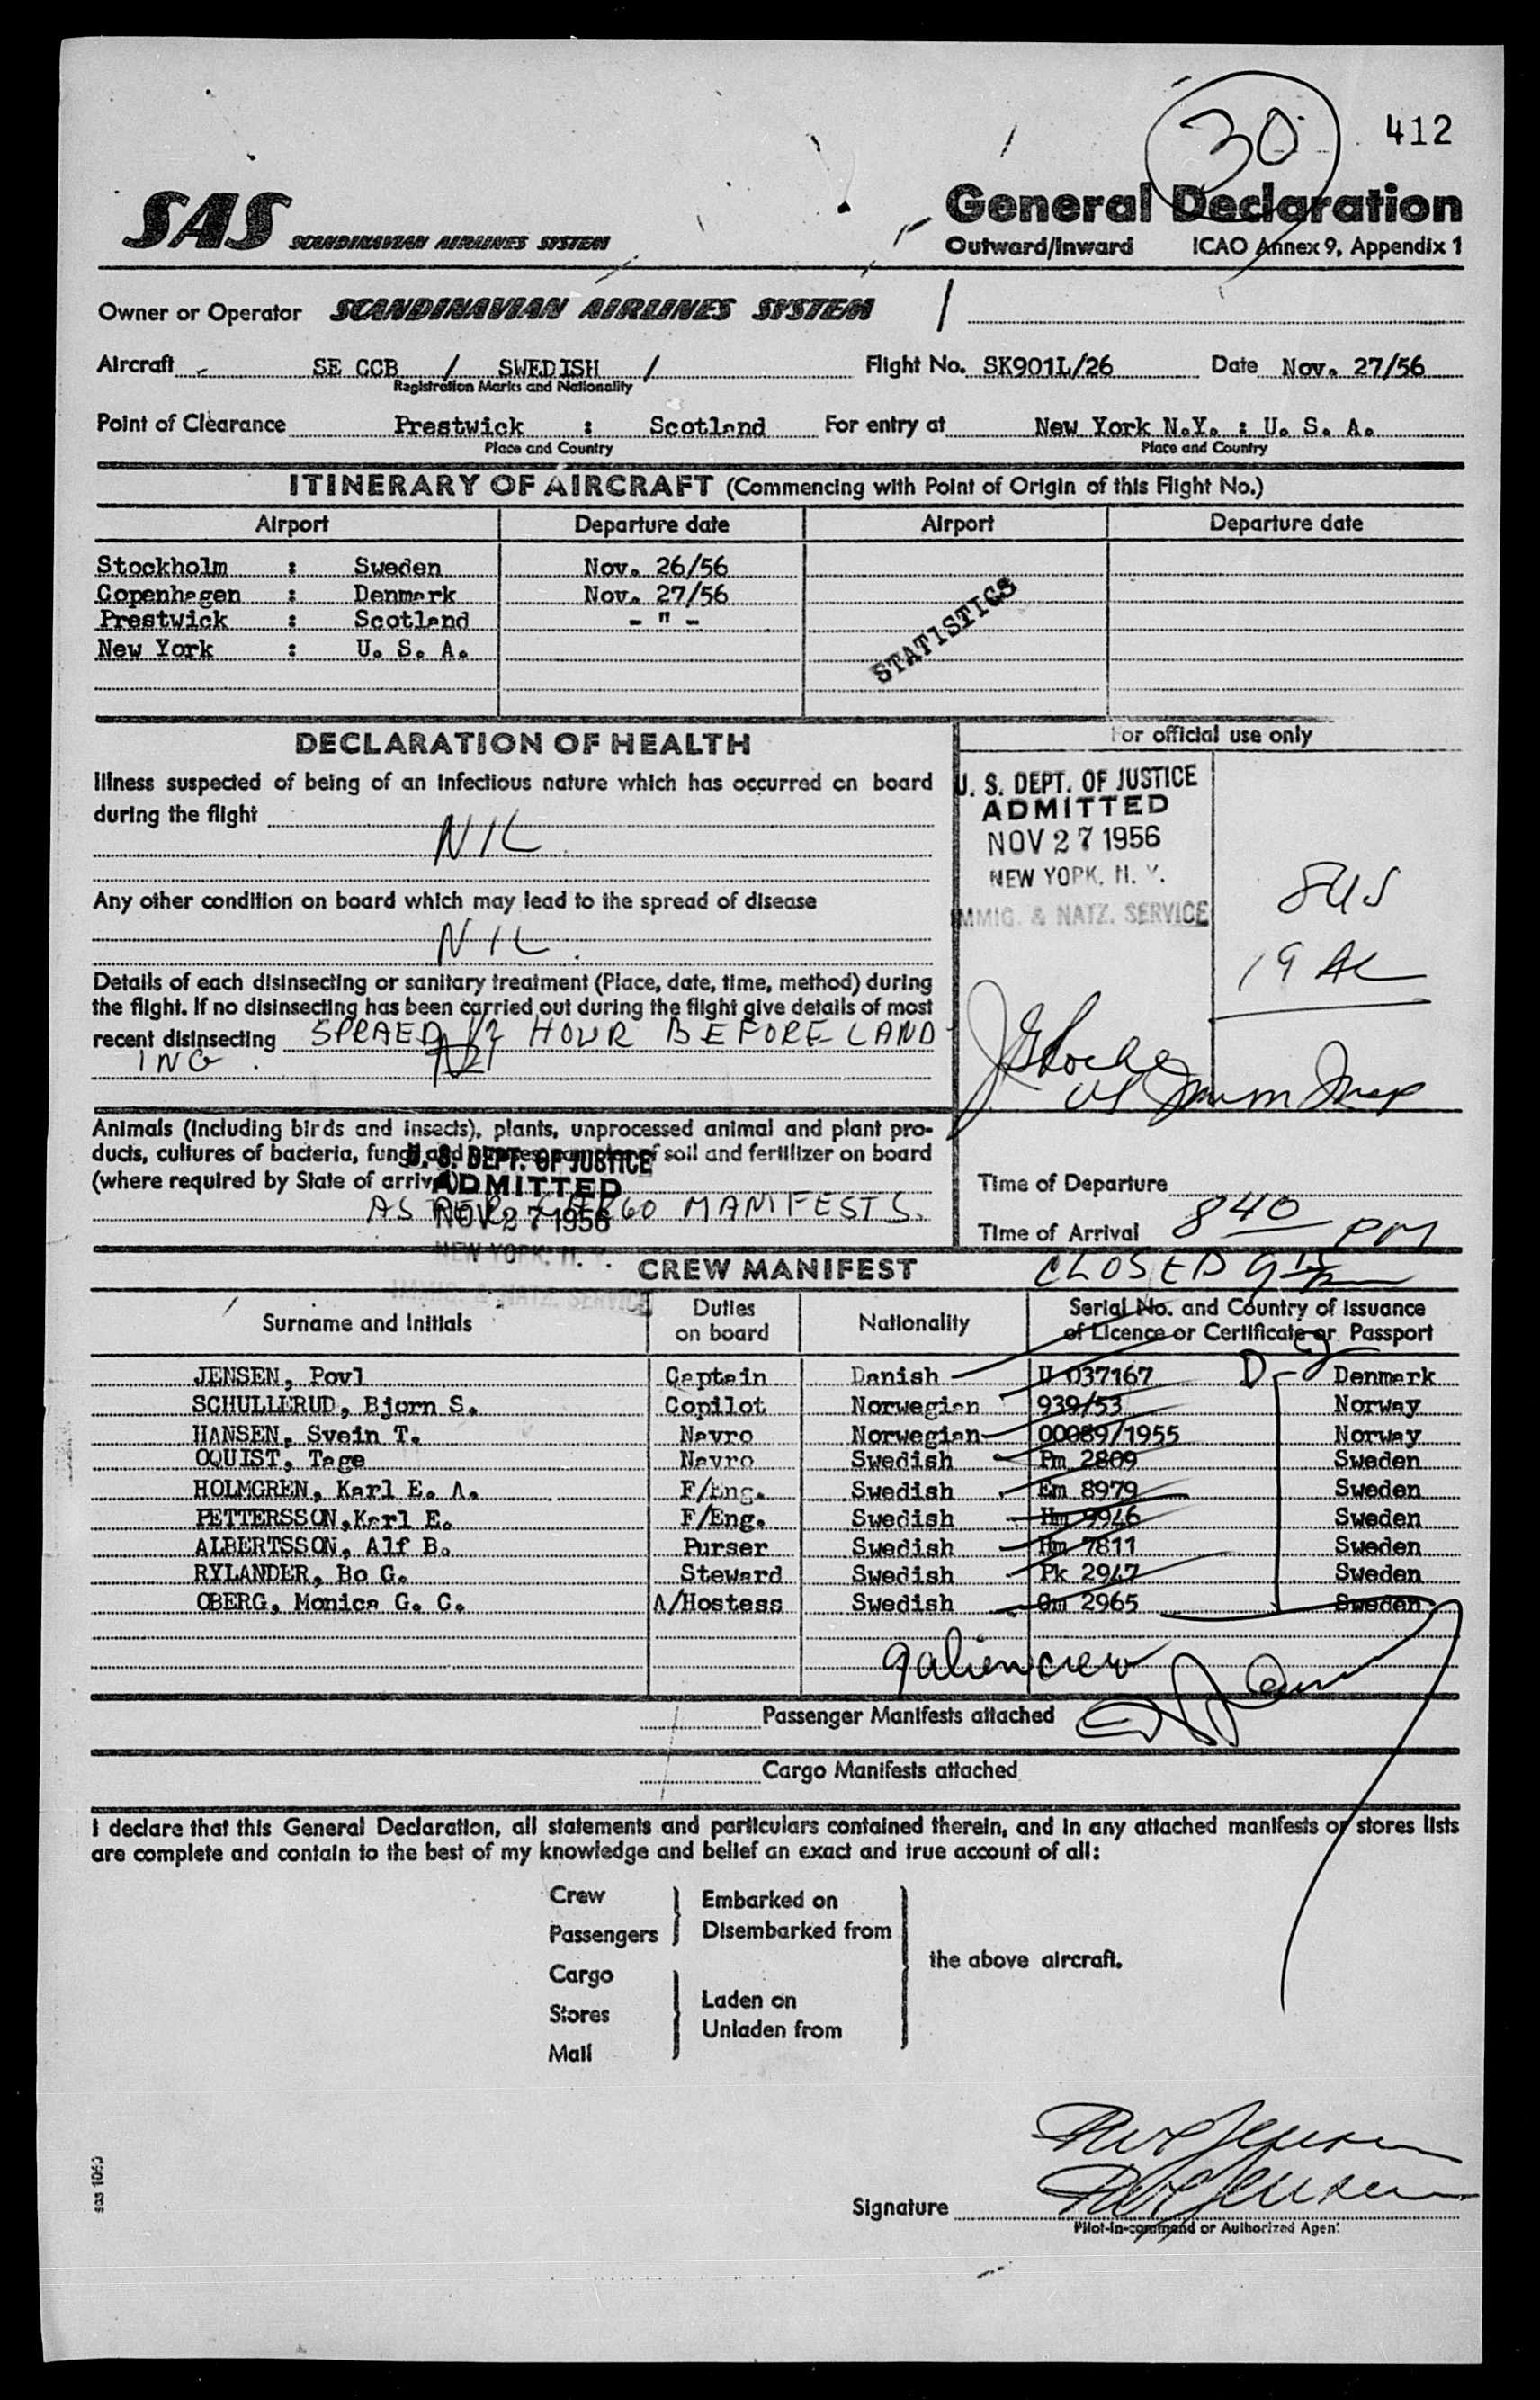 30 412
SAS SCANDINAVIAN AIRLINES SYSTEM
General Declaration
Outward/Inward ICAO Annex 9, Appendix 1
Owner or Operator SCANDINAVIAN AIRLINES SYSTEM /
Aircraft SE CCB / SWEDISH / Flight No. SK901L/26 Date Nov. 27/56
Registration Marks and Nationality
Point of Clearance Prestwick : Scotland For entry at New York N.Y. : U. S. A.
Place and Country Place and Country
ITINERARY OF AIRCRAFT (Commencing with Point of Origin of this Flight No.)
Airport Departure date Airport Departure date
Stockholm : Sweden Nov. 26/56
Copenhagen : Denmark Nov. 27/56
Prestwick : Scotland - " -
New York : U. S. A.
STATISTICS
DECLARATION OF HEALTH
Illness suspected of being of an infectious nature which has occurred on board
during the flight
NIL
Any other condition on board which may lead to the spread of disease
NIL.
Details of each disinsecting or sanitary treatment (Place, date, time, method) during
the flight. If no disinsecting has been carried out during the flight give details of most
recent disinsecting SPRAED 1/2 HOUR BEFORE LAND
ING.
For official use only
U. S. DEPT. OF JUSTICE
ADMITTED
NOV 27 1956
NEW YORK, N. Y.
IMMIG. & NATZ. SERVICE
8US
19 AL
Animals (including birds and insects), plants, unprocessed animal and plant pro-
ducts, cultures of bacteria, fungi and soil and fertilizer on board
(where required by State of arrival)
AS PER CARGO MANIFESTS.
U. S. DEPT. OF JUSTICE
ADMITTED
NOV 27 1956
NEW YORK, N. Y.
IMMIG. & NATZ. SERVICE
Time of Departure
Time of Arrival 840 PM
CREW MANIFEST CLOSED
Surname and Initials Duties on board Nationality Serial No. and Country of Issuance
of Licence or Certificate or Passport
JENSEN, Povl Captain Danish U 037167 Denmark
SCHULLERUD, Bjorn S. Copilot Norwegian 939/53 Norway
HANSEN, Svein T. Navro Norwegian 00089/1955 Norway
OQUIST, Tage Navro Swedish Pm 2809 Sweden
HOLMGREN, Karl E. A. F/Eng. Swedish Em 8979 Sweden
PETTERSSON, Karl E. F/Eng. Swedish Hm 9946 Sweden
ALBERTSSON, Alf B. Purser Swedish Hm 7811 Sweden
RYLANDER, Bo G. Steward Swedish Pk 2947 Sweden
OBERG, Monica G. C. A/Hostess Swedish Om 2965 Sweden
9 alien crew
Passenger Manifests attached
Cargo Manifests attached
I declare that this General Declaration, all statements and particulars contained therein, and in any attached manifests or stores lists
are complete and contain to the best of my knowledge and belief an exact and true account of all:
Crew Embarked on
Passengers Disembarked from
the above aircraft.
Cargo
Stores Laden on
Unladen from
Mail
Povl Jensen
Signature Povl Jensen
Pilot-in-command or Authorized Agent
sas 1060